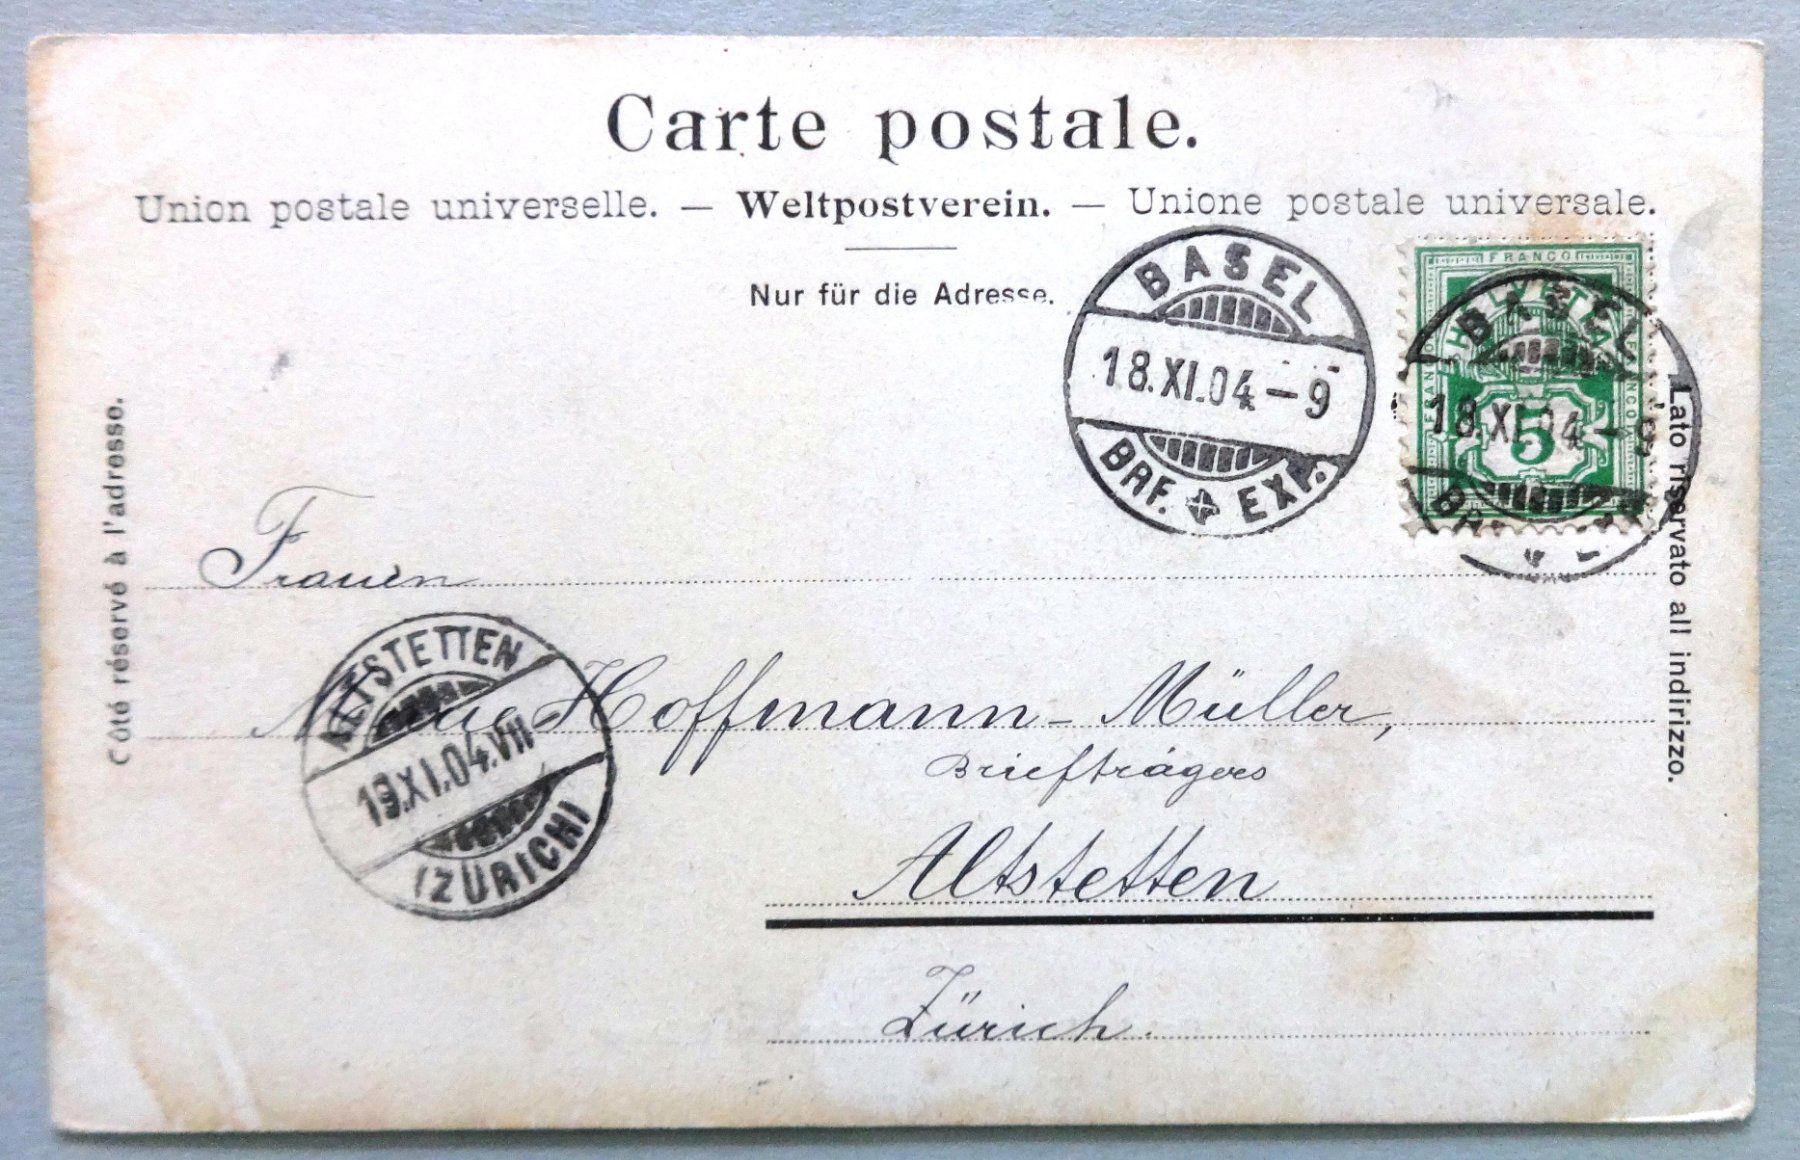 Carte postale.
Union postale universelle. — Weltpostverein. — Unione postale universale.
Nur für die Adresse.
BASEL
18.XI.04-9
BRF. EXP.
FRANCO
HELVETIA
FRANCO
FRANCO
5
BASEL
18.XI.04-9
Côté réservé à l'adresse.
Lato riservato all indirizzo.
Frauen
Hoffmann-Müller,
Briefträgers
Altstetten
Zürich.
ALTSTETTEN
19.XI.04.VII
(ZÜRICH)